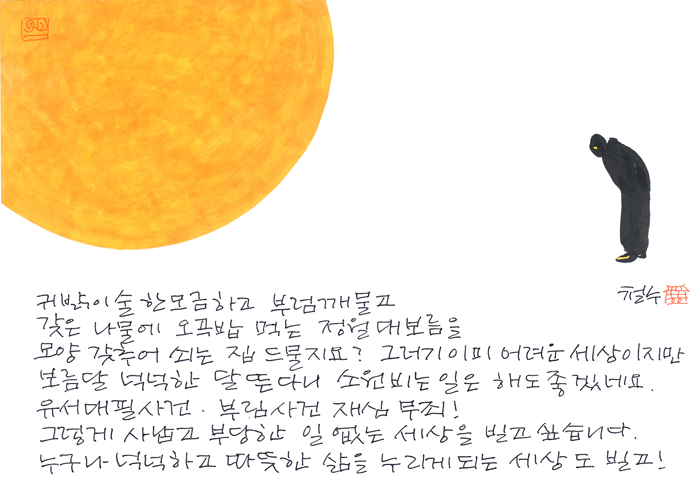 철수
귀밝이술 한모금하고 부럼깨물고
갖은 나물에 오곡밥 먹는 정월대보름을
모양 갖추어 쇠는 집 드물지요? 그러기 이미 어려운 세상이지만
보름달 넉넉한 달 뜬다니 소원비는 일은 해도 좋겠네요.
유서대필사건·부림사건 재심 무죄!
그렇게 사납고 부당한 일 없는 세상을 빌고 싶습니다.
누구나 넉넉하고 따뜻한 삶을 누리게되는 세상도 빌고!